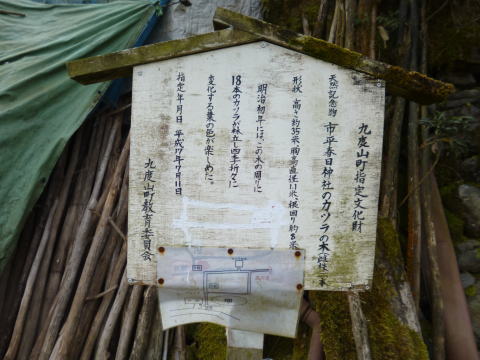 九度山町指定文化財
天然記念物 市平春日神社のカツラの木
形状 高さ約35米、胸高直径1.1米、根回り約8米
明治初年には、この木の周りに
18本のカツラが林立し四季折々に
変化する葉の色が楽しめた。
指定年月日 平成17年7月11日
九度山町教育委員会